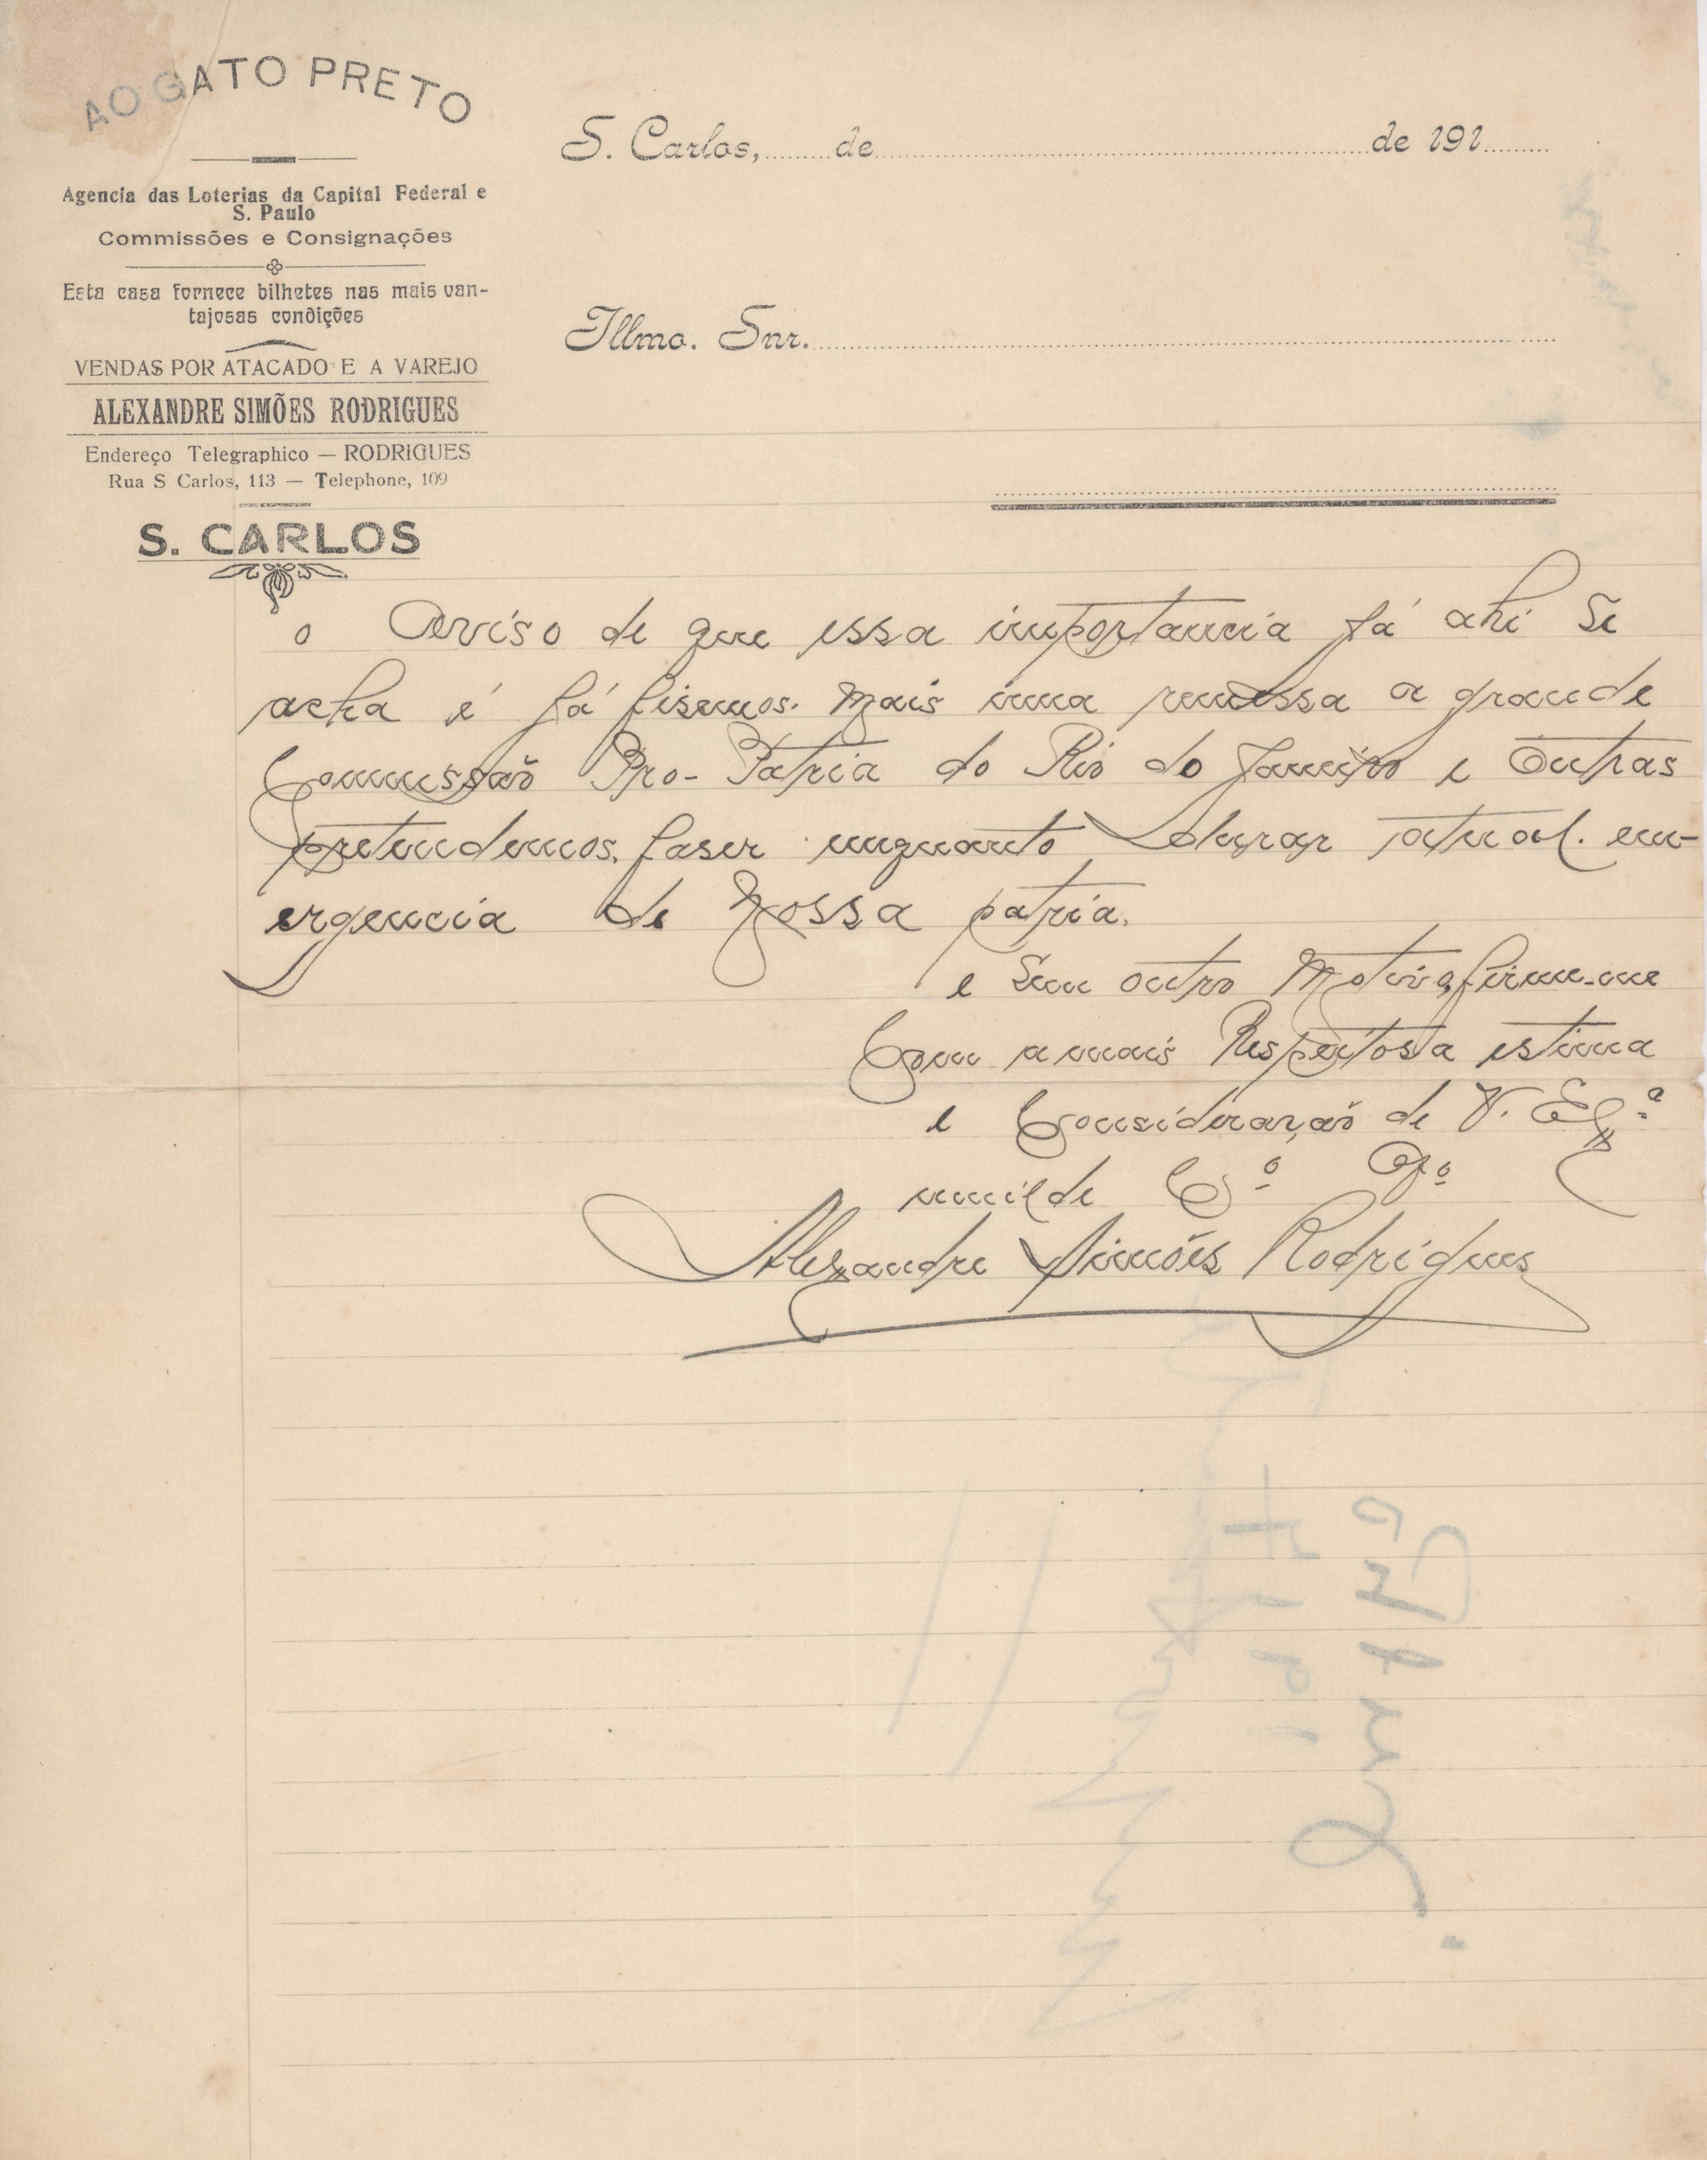 AO GATO PRETO
Agencia das Loterias da Capital Federal e
S. Paulo
Commissões e Consignações
Esta casa fornece bilhetes nas mais van-
tajosas condições
VENDAS POR ATACADO E A VAREJO
ALEXANDRE SIMÕES RODRIGUES
Endereço Telegraphico — RODRIGUES
Rua S Carlos, 113 — Telephone, 109
S. CARLOS
S. Carlos, de de 191
Illmo. Snr.
o Aviso de que essa importancia já ahi se
acha é já fisemos. mais uma remessa a grande
Commissão Pro-Patria do Rio do Janeiro e Outras
pretendemos. faser emquanto durar atual. em-
ergencia de Nossa patria.
e sem outro Motivo, firme-me
Com a mais Respeitosa estima
e Consideração de V. Exª
umilde Cº Oº
Alexandre Simões Rodrigues